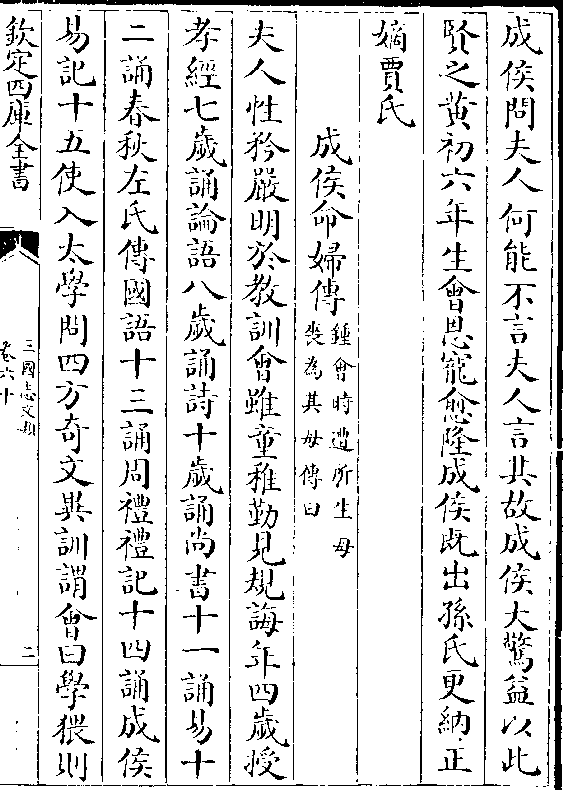 成侯問夫人何能不言夫人言其故成侯大驚益以此
賢之黄初六年生會恩寵愈隆成侯既出孫氏更納正
嫡賈氏
成侯命婦傳
鍾會時遭所生母
喪為其母傳曰
夫人性矜嚴明於教訓會雖童稚勤見規誨年四歲授
孝經七歲誦論語八歲誦詩十歲誦尚書十一誦易十
二誦春秋左氏傳國語十三誦周禮禮記十四誦成侯
易記十五使入太學問四方奇文異訓謂會曰學猥則
欽定四庫全書
三國志文類
卷六十
二